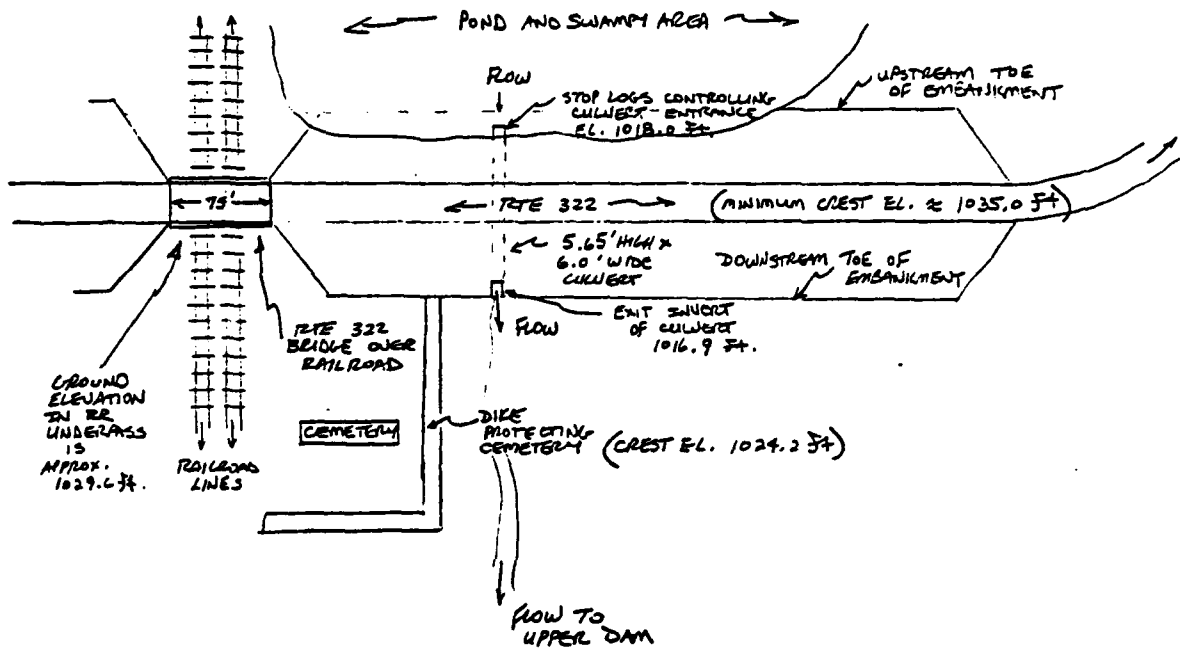 POND AND SWAMPY AREA
FLOW
STOP LOGS CONTROLLING
CULVERT ENTRANCE
EL. 1018.0 Ft.
UPSTREAM TOE
OF EMBANKMENT
75'
RTE 322
(MINIMUM CREST EL. ≈ 1035.0 Ft)
5.65' HIGH x
6.0' WIDE
CULVERT
DOWNSTREAM TOE OF
EMBANKMENT
FLOW
EXIT INVERT
OF CULVERT
1016.9 Ft.
RTE 322
BRIDGE OVER
RAILROAD
GROUND
ELEVATION
IN RR
UNDERPASS
IS
APPROX.
1029.6 Ft.
RAILROAD
LINES
CEMETERY
DIKE
PROTECTING
CEMETERY
(CREST EL. 1024.2 Ft)
FLOW TO
UPPER DAM